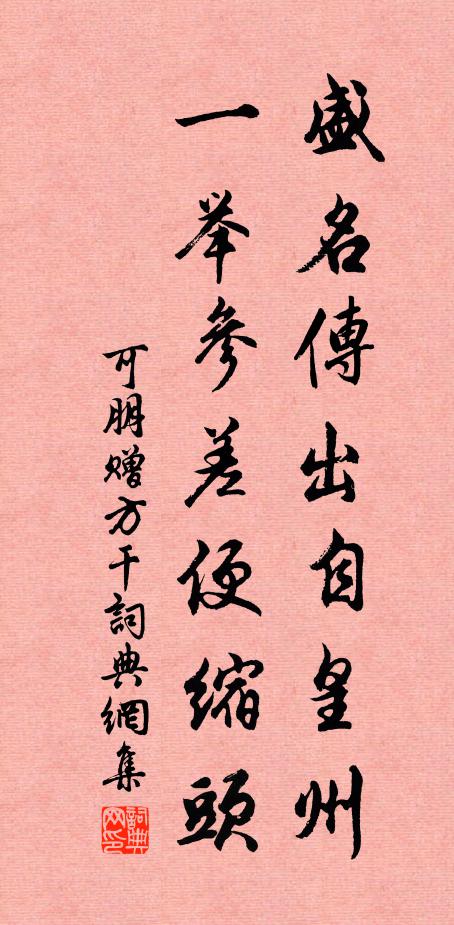 盛名傳出自皇州
一举參差便縮頭
可朋赠方干詞典網集
詞典网印